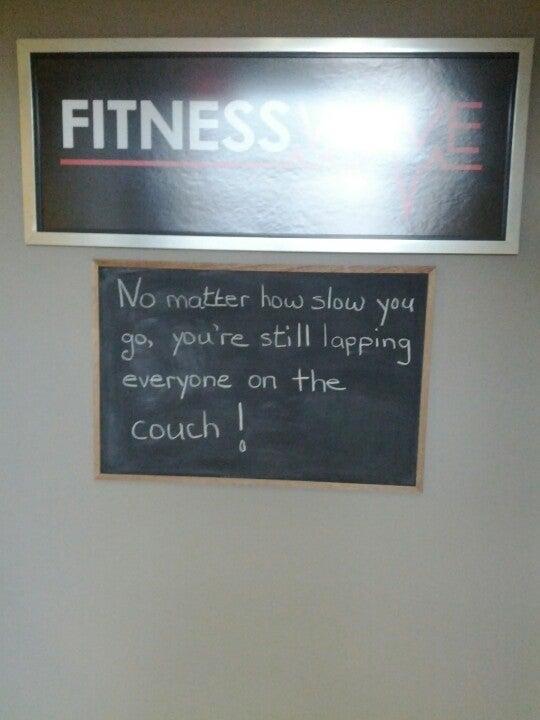 FITNESS
No matter how slow you
go, you're still lapping
everyone on the
couch!